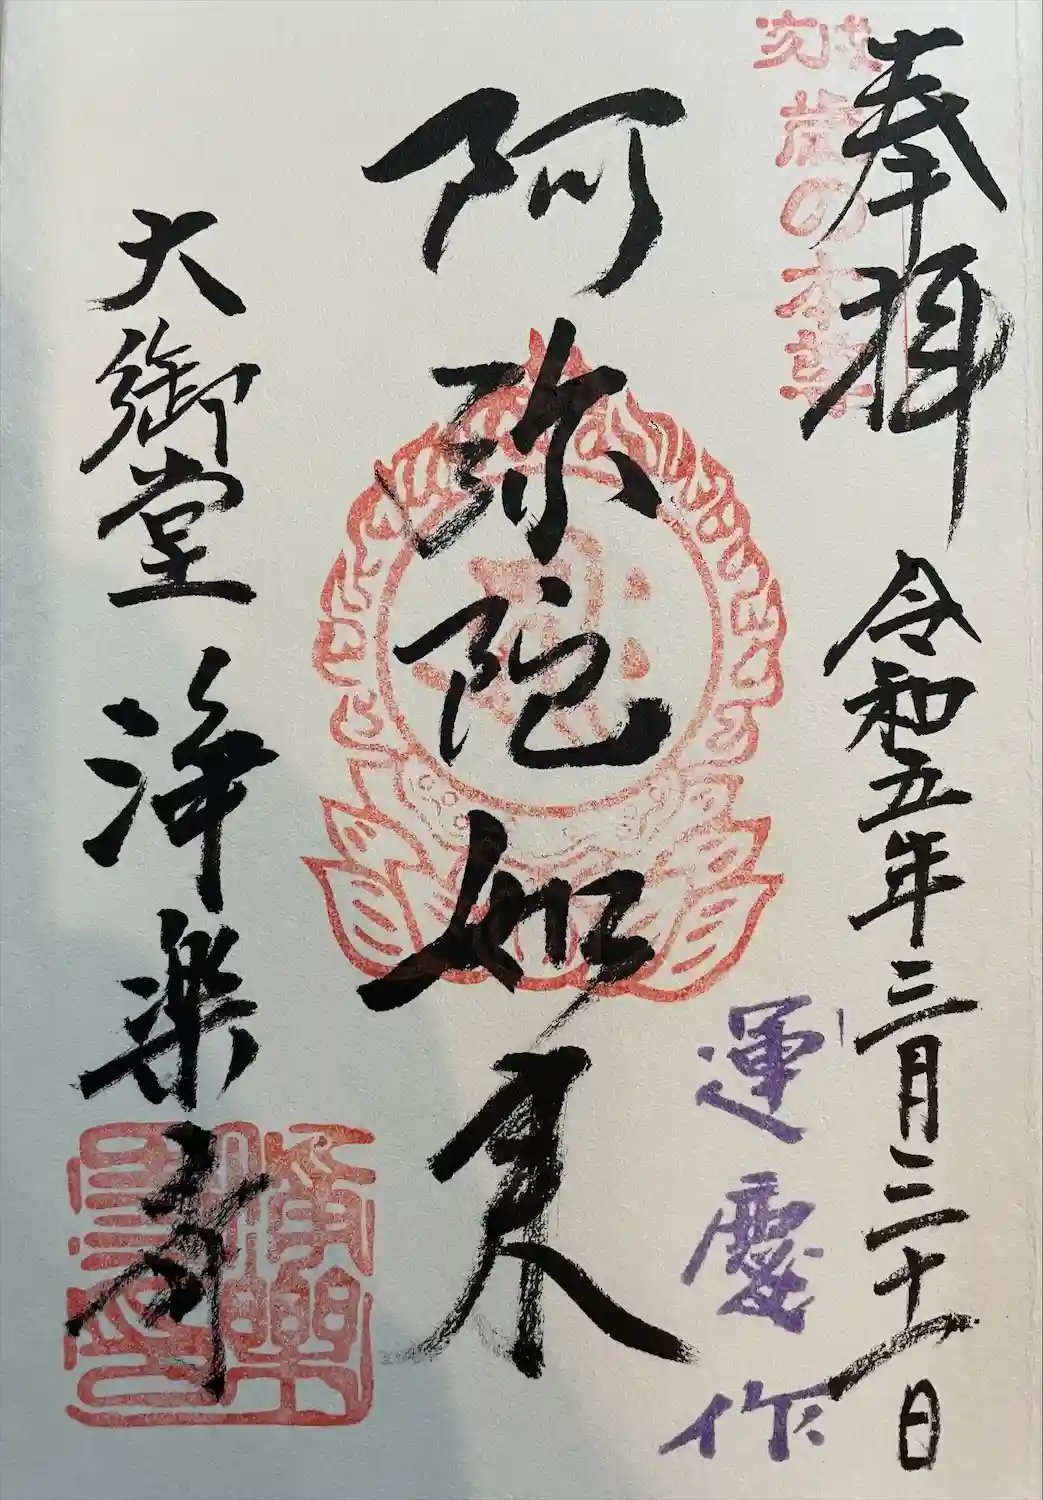 奉拝
令和五年三月二十一日
歳の本尊
運慶作
阿弥陀如来
大御堂
浄楽寺